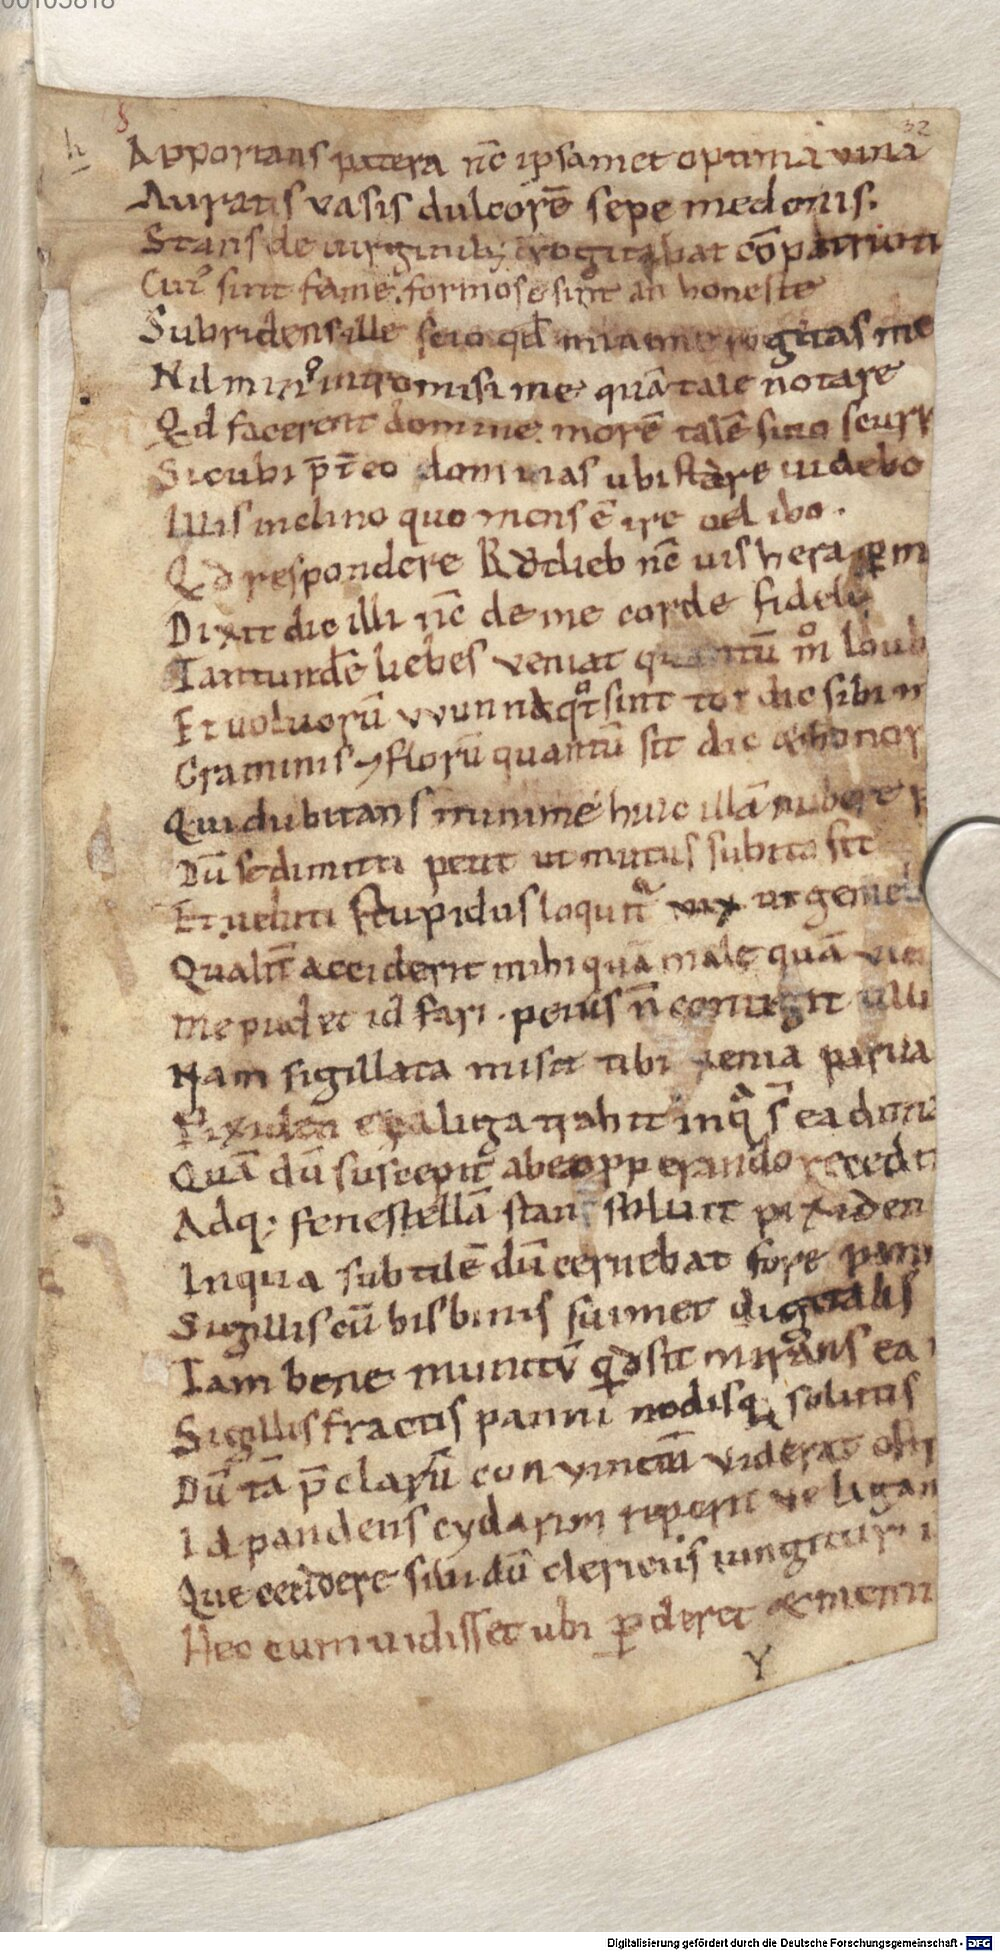 00103818
32
Apportans patera nc̄ ipsamet optima vina
Auratis vasis dulcorē sepe medonis.
Stans de virginib; rogitabat cōpatriot
Cui⁹ sint fame. formose sint an honeste
Subridens ille scio qd̄ rogitas me
Nil min⁹ intromisi me quā tale notare
Qd facerent domine. morē talē sino scurr
Sicubi p̄t̄eo dominas ubi stare videbo
Illis inclino quo mens ē ire vel ibo.
Qd respondere Rŏdlieb nc̄ vis hera p m
Dixit dic illi nc̄ de me corde fideli
Tantundē liebes veniat quantū m̊ loub
Et volucrū vvunna qt̊ sint tot dic sibi m
Graminis ⁊ florū quantū sit dic & honor
Qui dubitans minime huic illā nubere p
Dū se dimitti petit ut mutus subito sit
Et veluti stupidus loqunt̄ vix ut gemeb
Qualit̄ acciderit mihi quā male quā
me pudet id fari. peius n̄ contigit ulli
Nam sigillata misit tibi xenia parva
Pixidēn e caliga trahit inq̄ s̄ ea dona
Quā dū suscepit abeo pp erando recedit
Adq; fenestellā stans solvit pixiden
Inqua subtilē dū cernebat fore pann
Sigillis cū bisbinis suimet digitalis
Tam bene munitū qd sit mirans ea
Sigillis fractis panni nodisq; solutis
Dū tā p̄clarū convinctū viderat ostr
Id pandens cydarim reperit ve ligam
Que cecidere sibi dū clericus iungitur i
Hec cum vidisset ubi pderet & memi
Y
Digitalisierung gefördert durch die Deutsche Forschungsgemeinschaft - DFG